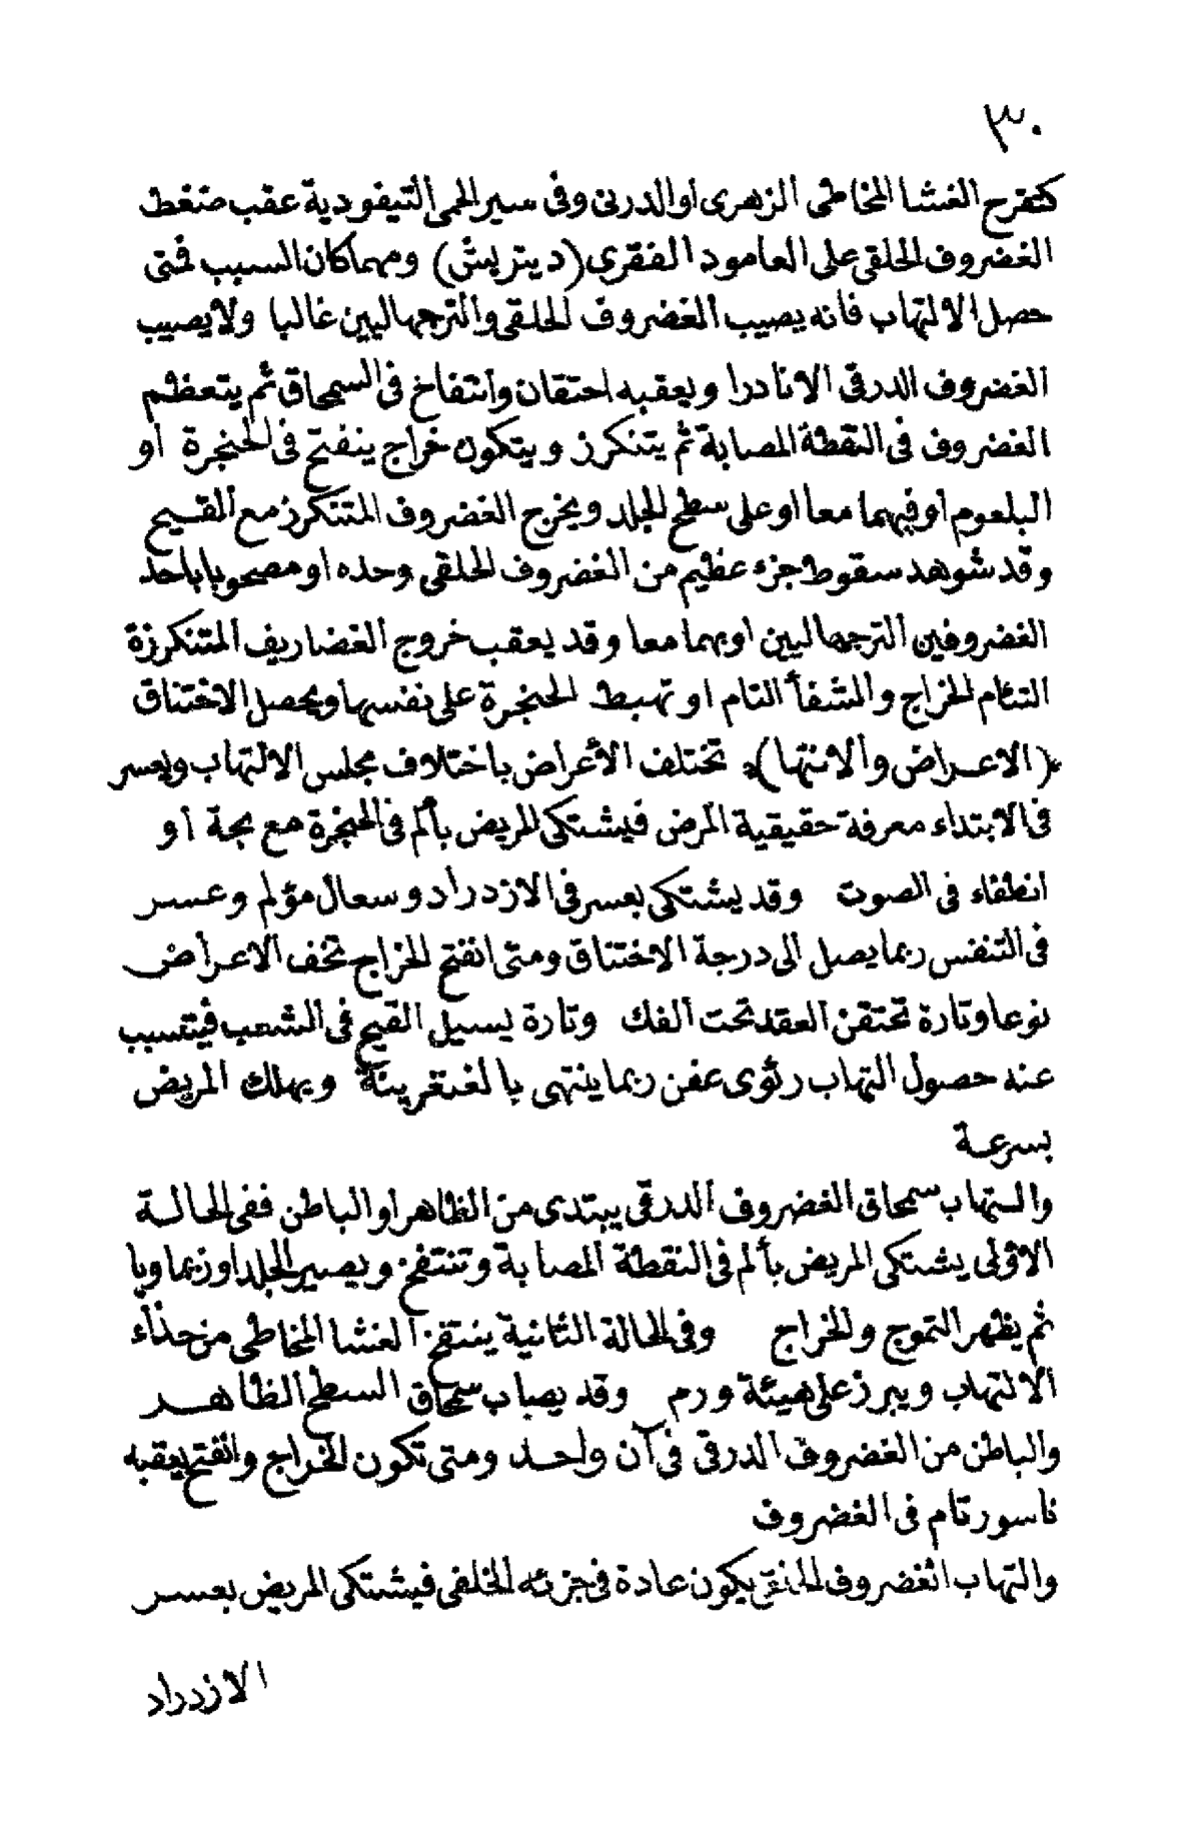 ٣٠
كتقرح الغشا المخاطى الزهرى او الدرنى وفى سير الحمى التيفودية عقب ضغط
الغضروف الحلقى على العامود الفقرى (ديتريش) ومهما كان السبب فمتى
حصل الالتهاب فانه يصيب الغضروف الحلقى والترجهاليين غالبا ولا يصيب
الغضروف الدرقى الا نادرا ويعقبه احتقان وانتفاخ فى السمحاق ثم يتعظم
الغضروف فى النقطة المصابة ثم يتنكرز ويتكون خراج ينفتح فى الحنجرة او
البلعوم او فيهما معا او على سطح الجلد ويخرج الغضروف المتنكرز مع القيح
وقد شوهد سقوط جزء عظيم من الغضروف الحلقى وحده او مصحوبا باحد
الغضروفين الترجهاليين او بهما معا وقد يعقب خروج الغضاريف المتنكرزة
التئام الخراج والشفأ التام او تهبط الحنجرة على نفسها ويحصل الاختناق
﴿الاعراض والانتها﴾ تختلف الأعراض باختلاف مجلس الالتهاب ويعسر
فى الابتداء معرفة حقيقية المرض فيشتكى المريض بألم فى الحنجرة مع بحة او
انطفاء فى الصوت وقد يشتكى بعسر فى الازدراد وسعال مؤلم وعسر
فى التنفس ربما يصل الى درجة الاختناق ومتى انفتح الخراج تخف الاعراض
نوعا وتارة تحتقن العقد تحت الفك وتارة يسيل القيح فى الشعب فيتسبب
عنه حصول التهاب رئوى عفن ربما ينتهى بالغنغرينة ويهلك المريض
بسرعة
والتهاب سمحاق الغضروف الدرقى يبتدى من الظاهر او الباطن ففى الحالة
الاولى يشتكى المريض بألم فى النقطة المصابة وتنتفخ ويصير الجلد اوزيماويا
ثم يظهر التموج والخراج وفى الحالة الثانية ينتفخ الغشا المخاطى من حذاء
الالتهاب ويبرز على هيئة ورم وقد يصاب سمحاق السطح الظاهر
والباطن من الغضروف الدرقى فى آن واحد ومتى تكون الخراج وانفتح يعقبه
ناسور تام فى الغضروف
والتهاب الغضروف الحلقى يكون عادة فى جزئه الخلفى فيشتكى المريض بعسر
الازدراد